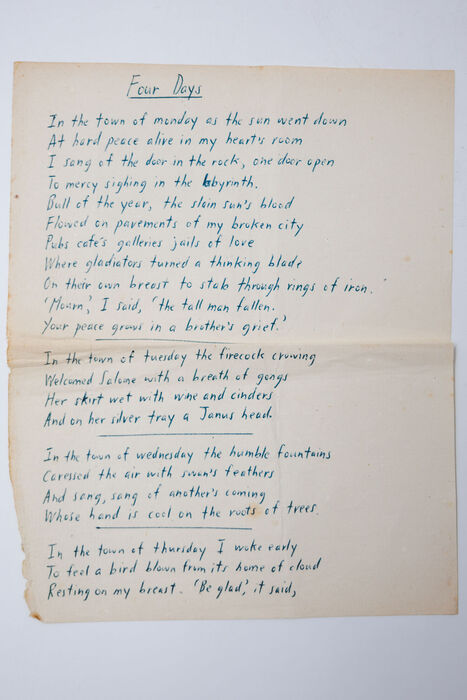 Four Days
In the town of monday as the sun went down
At hard peace alive in my heart's room
I sang of the door in the rock, one door open
To mercy sighing in the labyrinth.
Bull of the year, the slain sun's blood
Flowed on pavements of my broken city
Pubs cafe's galleries jails of love
Where gladiators turned a thinking blade
On their own breast to stab through rings of iron.
'Mourn', I said, 'the tall man fallen.
Your peace grows in a brother's grief.'
In the town of tuesday the firecock crowing
Welcomed Salome with a breath of gongs
Her skirt wet with wine and cinders
And on her silver tray a Janus head.
In the town of wednesday the humble fountains
Caressed the air with swan's feathers
And sang, sang of another's coming
Whose hand is cool on the roots of trees.
In the town of thursday I woke early
To feel a bird blown from its home of cloud
Resting on my breast. 'Be glad', it said,